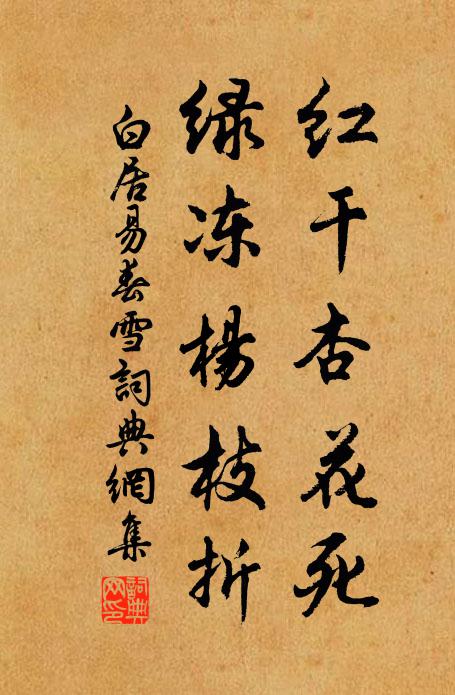 红干杏花死
绿冻楊枝折
白居易春雪詞典網集
詞典網印